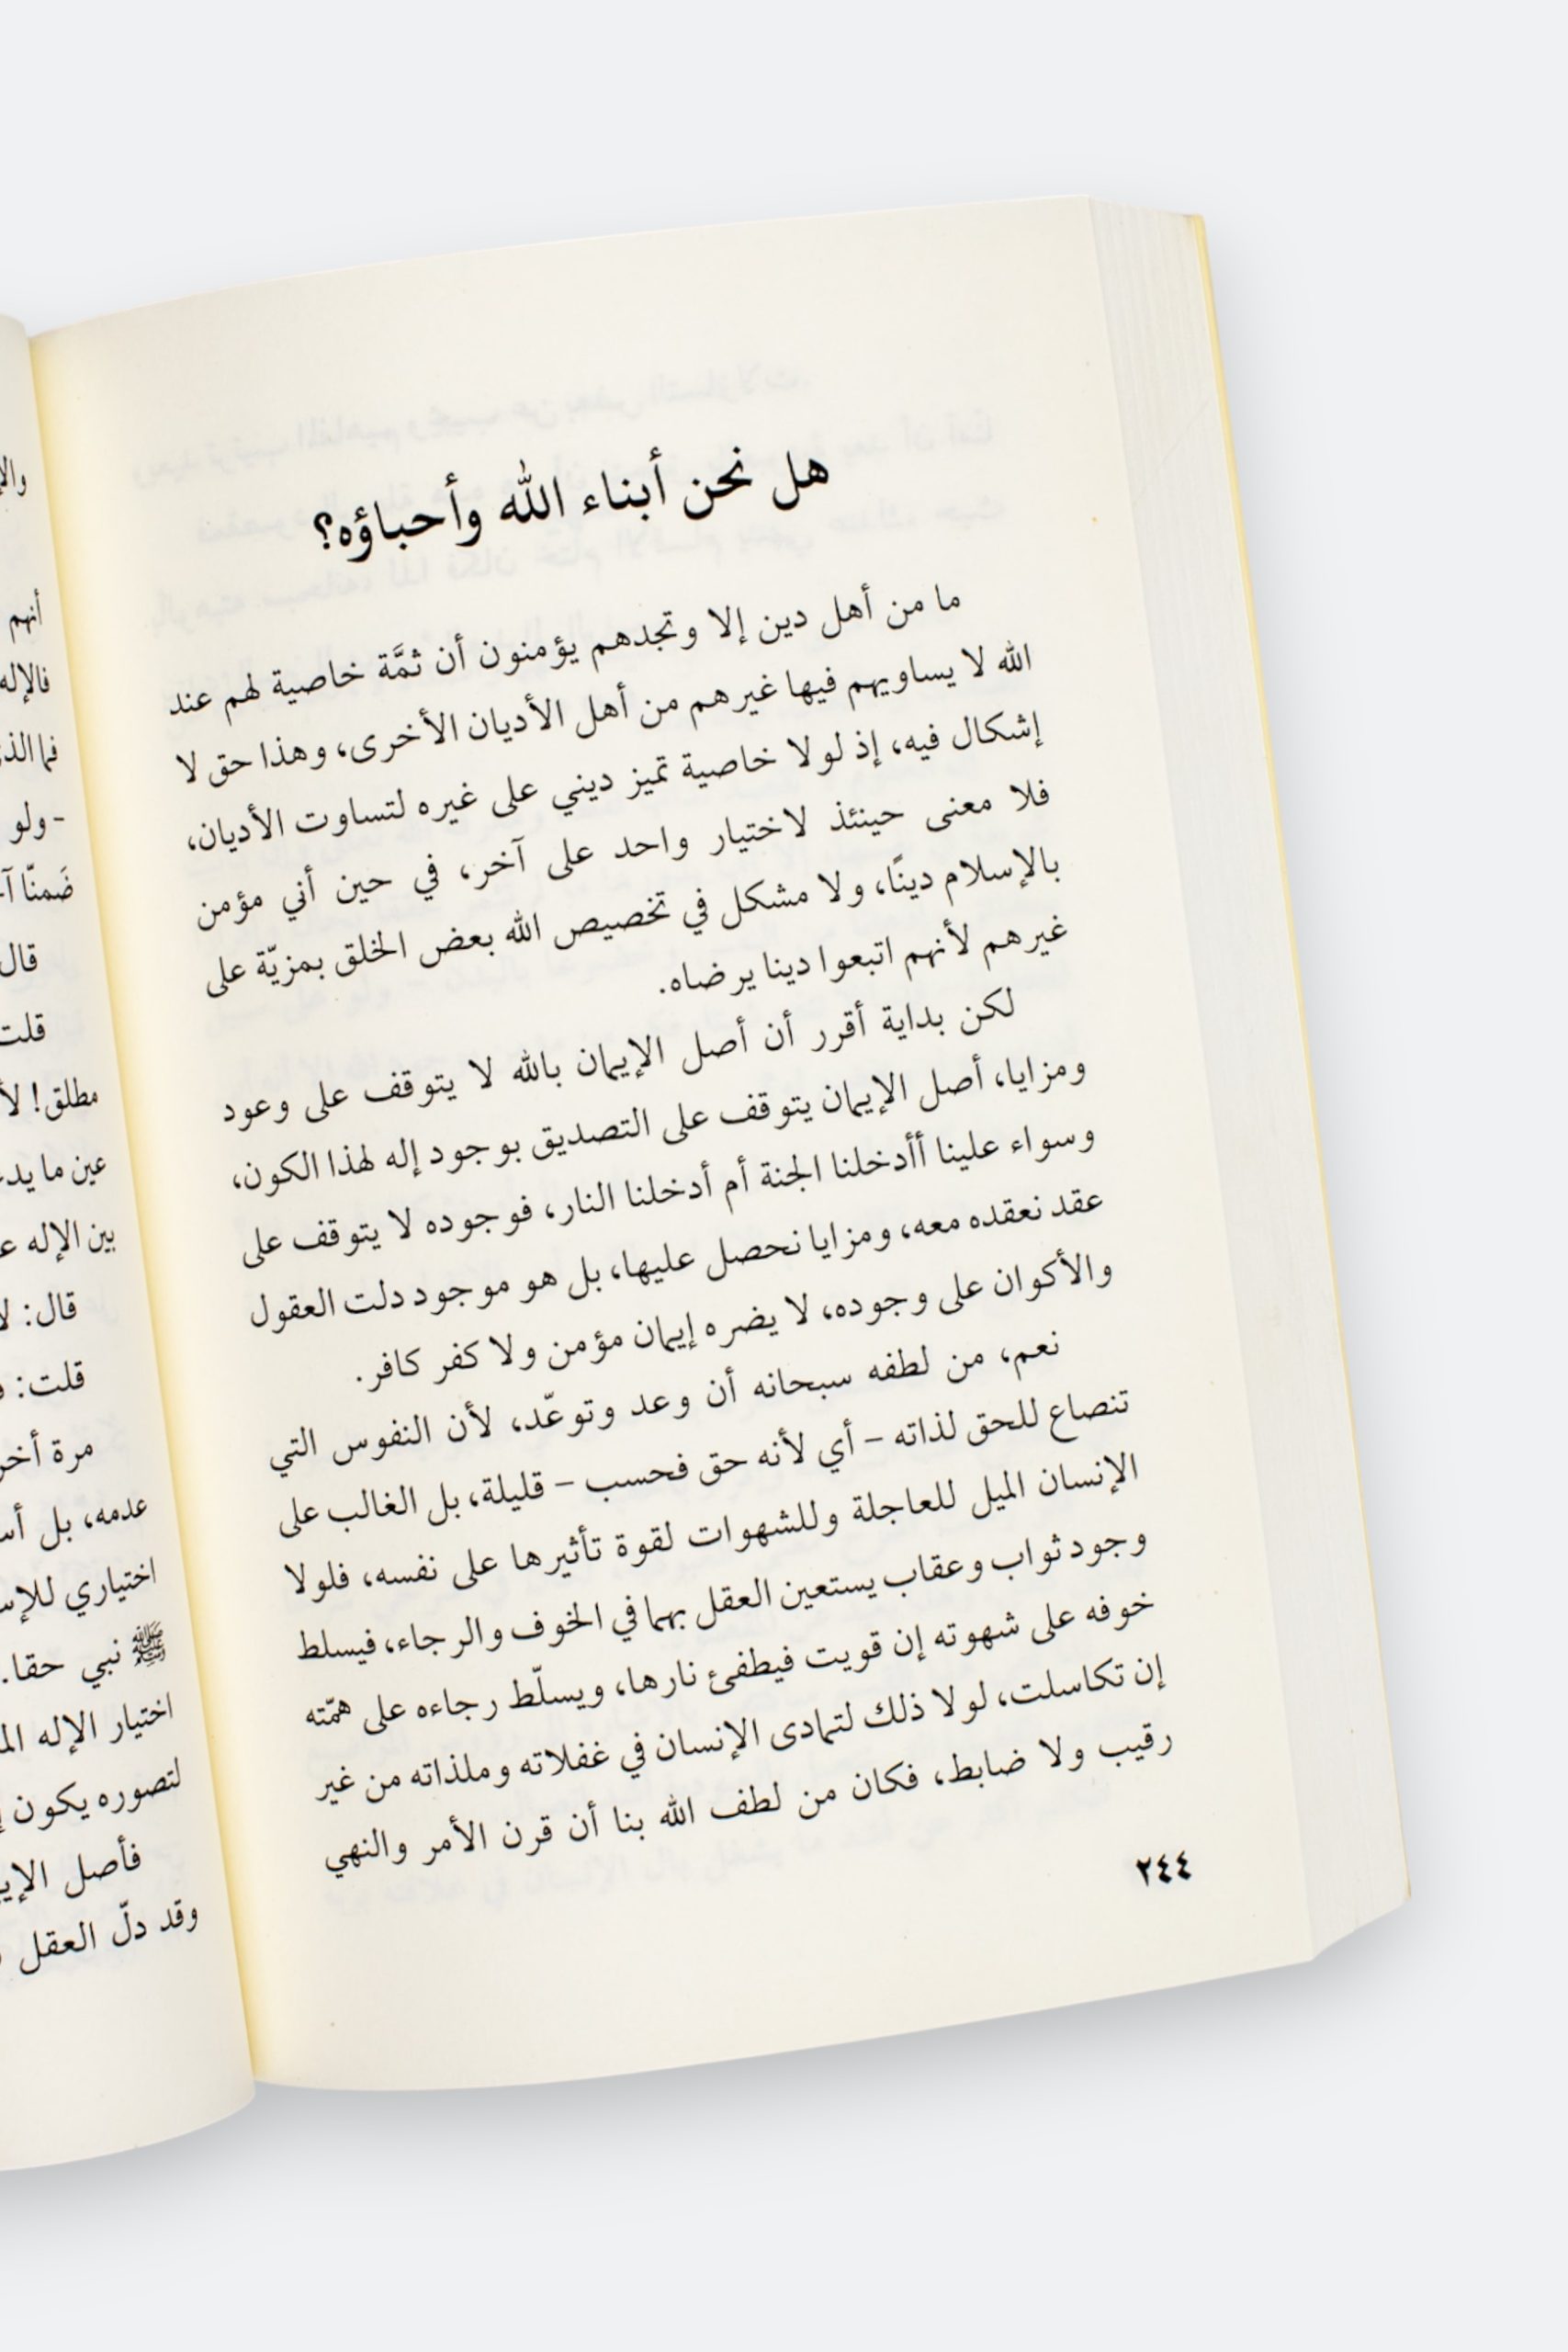 هل نحن أبناء الله وأحباؤه؟
ما من أهل دين إلا وتجدهم يؤمنون أن ثمَّة خاصية لهم عند
الله لا يساويهم فيها غيرهم من أهل الأديان الأخرى، وهذا حق لا
إشكال فيه، إذ لولا خاصية تميز ديني على غيره لتساوت الأديان،
فلا معنى حينئذ لاختيار واحد على آخر، في حين أني مؤمن
بالإسلام دينًا، ولا مشكل في تخصيص الله بعض الخلق بمزيّة على
غيرهم لأنهم اتبعوا دينا يرضاه.
لكن بداية أقرر أن أصل الإيمان بالله لا يتوقف على وعود
ومزايا، أصل الإيمان يتوقف على التصديق بوجود إله لهذا الكون،
وسواء علينا أأدخلنا الجنة أم أدخلنا النار، فوجوده لا يتوقف على
عقد نعقده معه، ومزايا نحصل عليها، بل هو موجود دلت العقول
والأكوان على وجوده، لا يضره إيمان مؤمن ولا كفر كافر.
نعم، من لطفه سبحانه أن وعد وتوعّد، لأن النفوس التي
تنصاع للحق لذاته – أي لأنه حق فحسب – قليلة، بل الغالب على
الإنسان الميل للعاجلة وللشهوات لقوة تأثيرها على نفسه، فلولا
وجود ثواب وعقاب يستعين العقل بهما في الخوف والرجاء، فيسلط
خوفه على شهوته إن قويت فيطفئ نارها، ويسلّط رجاءه على همّته
إن تكاسلت، لولا ذلك لتمادى الإنسان في غفلاته وملذاته من غير
رقيب ولا ضابط، فكان من لطف الله بنا أن قرن الأمر والنهي
٢٤٤
أنهم
فالإله
فما
- ولو
ضَمنّا
قال
مطلق! 
عين ما
بين الإله
قال:
قلت:
مرة
عدمه، بل
اختياري
ﷺ نبي حقا.
اختيار الإله
لتصوره يكون
فأصل
وقد دلّ العقل